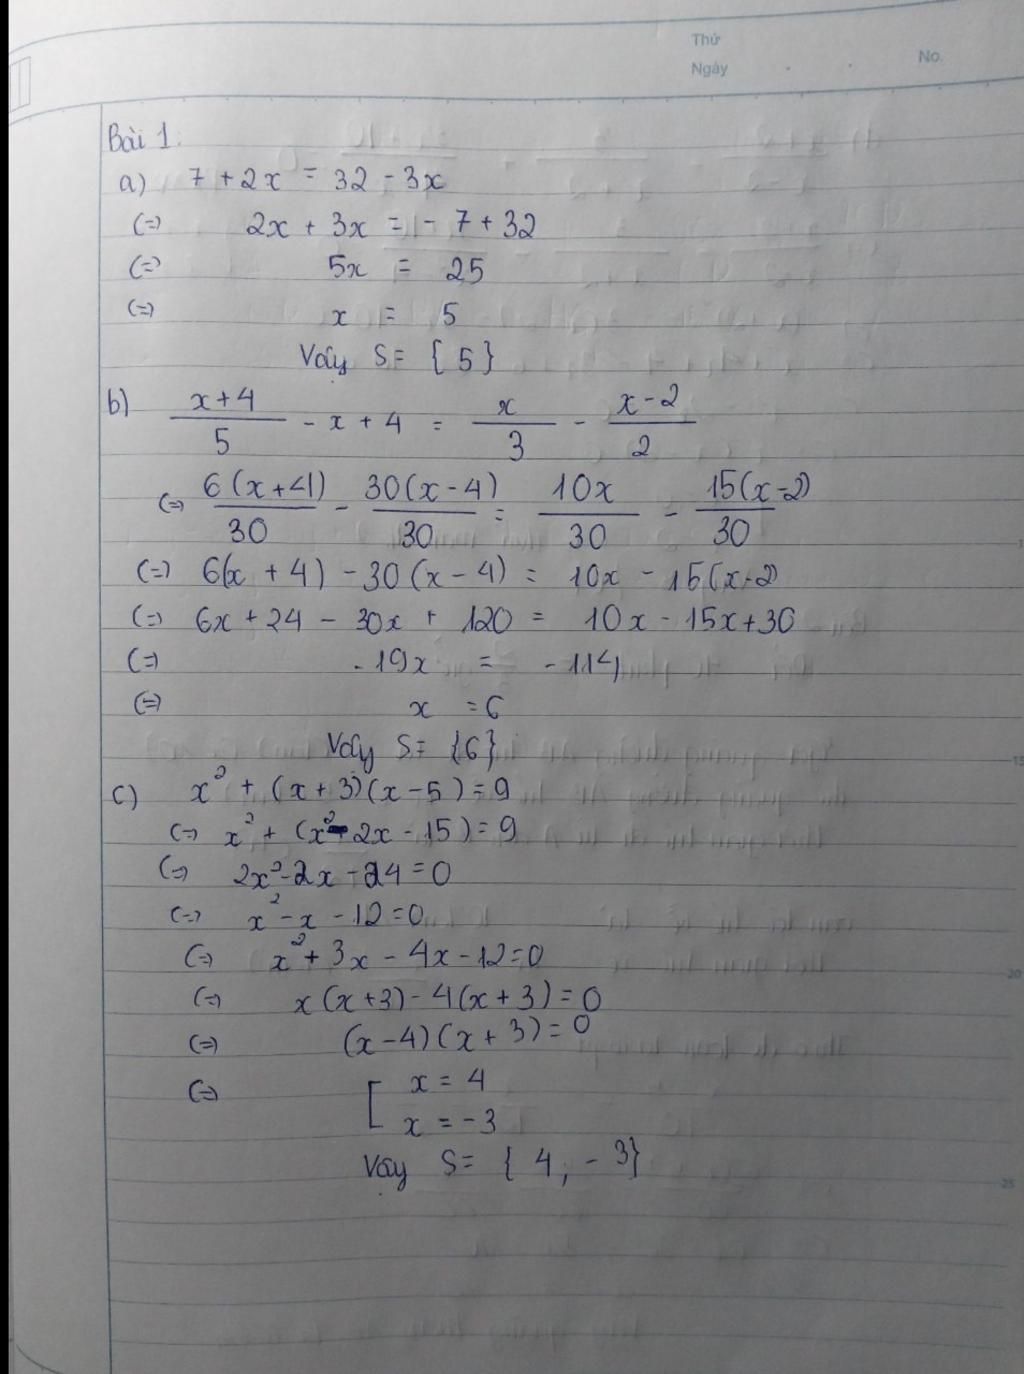 Thứ
Ngày
No.
Bài 1.
a) 7 + 2x = 32 - 3x
(=) 2x + 3x = - 7 + 32
(=) 5x = 25
(=) x = 5
Vậy S= { 5 }
b) \frac{x+4}{5} - x + 4 = \frac{x}{3} - \frac{x-2}{2}
(=) \frac{6(x+4)}{30} - \frac{30(x-4)}{30} = \frac{10x}{30} - \frac{15(x-2)}{30}
(=) 6(x + 4) - 30(x - 4) = 10x - 15(x-2)
(=) 6x + 24 - 30x + 120 = 10x - 15x + 30
(=) - 19x = - 114
(=) x = 6
Vậy S= {6}
c) x² + (x + 3)(x - 5) = 9
(=) x² + (x² - 2x - 15) = 9
(=) 2x² - 2x - 24 = 0
(=) x² - x - 12 = 0
(=) x² + 3x - 4x - 12 = 0
(=) x(x+3) - 4(x+3) = 0
(=) (x-4)(x+3) = 0
(=) [ x = 4
x = -3
Vậy S= { 4, - 3}
15
20
25